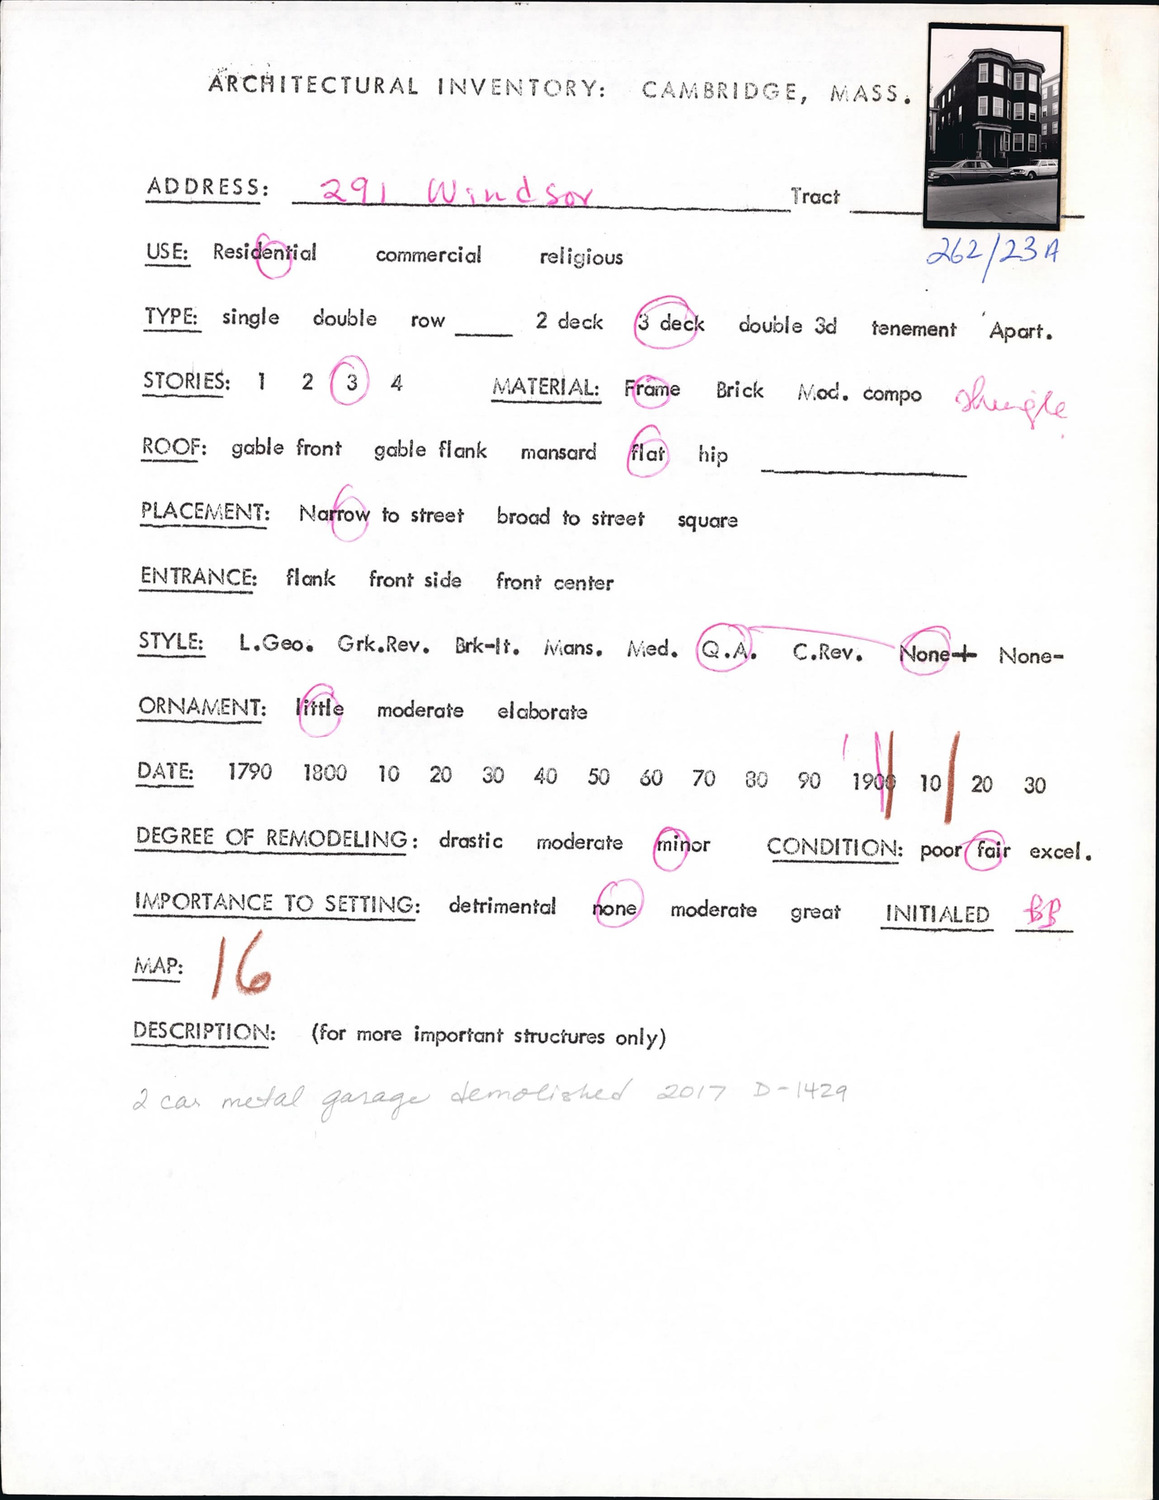 ARCHITECTURAL INVENTORY: CAMBRIDGE, MASS.
ADDRESS: 291 Windsor Tract
262/23A
USE: Residential commercial religious
TYPE: single double row ____ 2 deck 3 deck double 3d tenement Apart.
STORIES: 1 2 3 4 MATERIAL: Frame Brick Mod. compo shingle
ROOF: gable front gable flank mansard flat hip ____
PLACEMENT: Narrow to street broad to street square
ENTRANCE: flank front side front center
STYLE: L.Geo. Grk.Rev. Brk-It. Mans. Med. Q.A. C.Rev. None+ None-
ORNAMENT: little moderate elaborate
DATE: 1790 1800 10 20 30 40 50 60 70 80 90 1900 10 20 30
DEGREE OF REMODELING: drastic moderate minor CONDITION: poor fair excel.
IMPORTANCE TO SETTING: detrimental none moderate great INITIALED BB
MAP: 16
DESCRIPTION: (for more important structures only)
2 car metal garage demolished 2017 D-1429